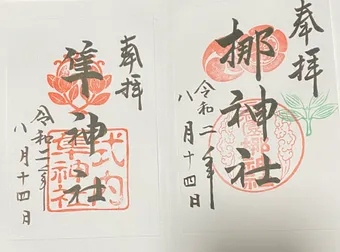 奉拝
梛神社
令和二年
八月十四日
奉拝
隼神社
令和二年
八月十四日
式内
隼神社